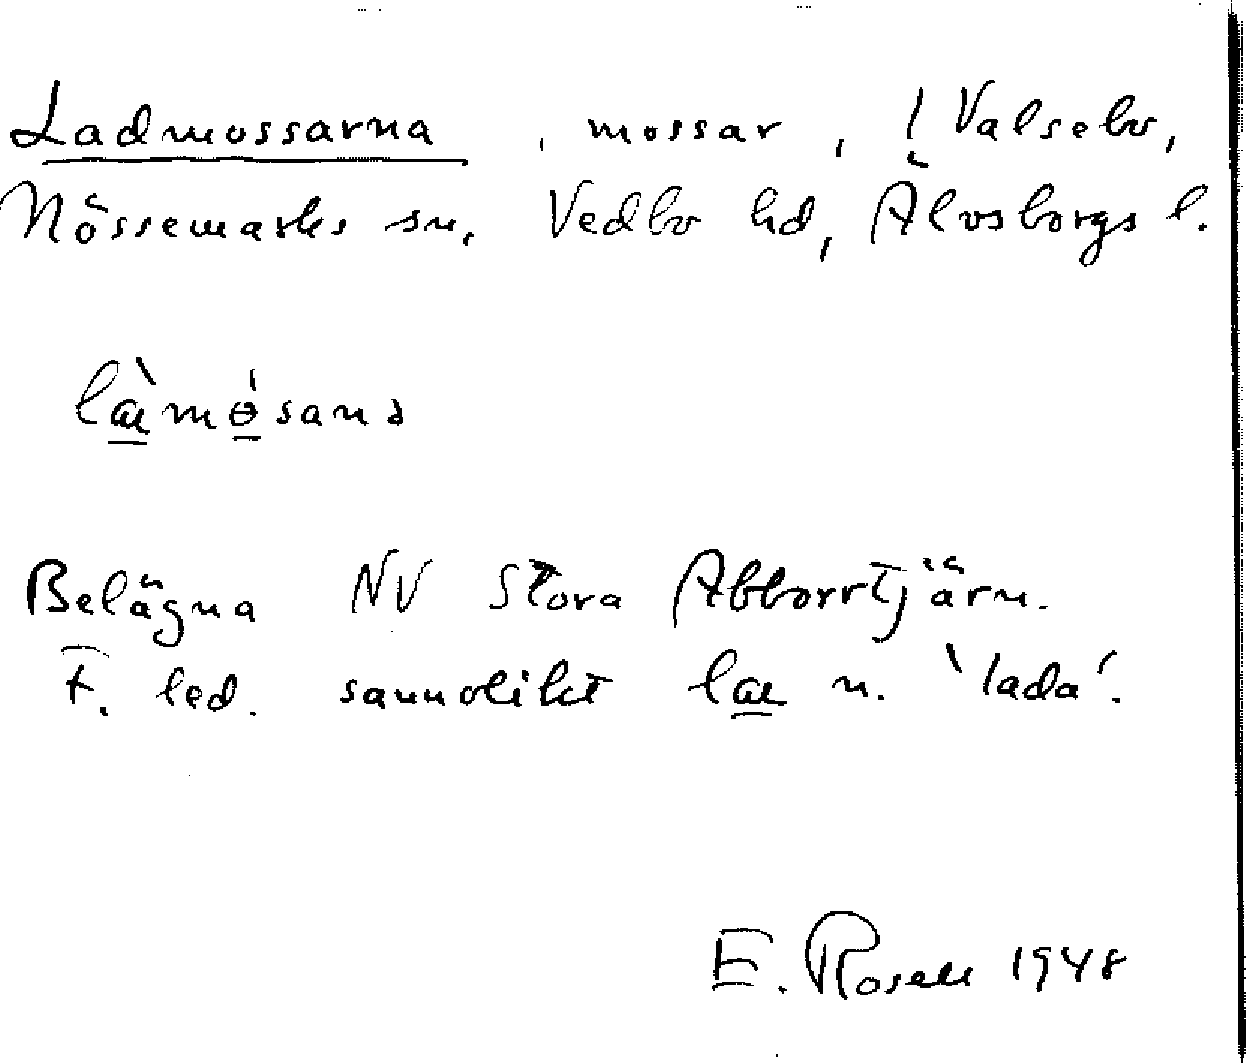 Ladmossarna, mossar, ! Valsebo,
Nössemarks sn, Vedbo hd, Älvsborgs l.
læ̀mɵ́sanə
Belägna NV Stora Abborrtjärn.
F. led. sannolikt læ n. 'lada'.
E. Rosell 1948